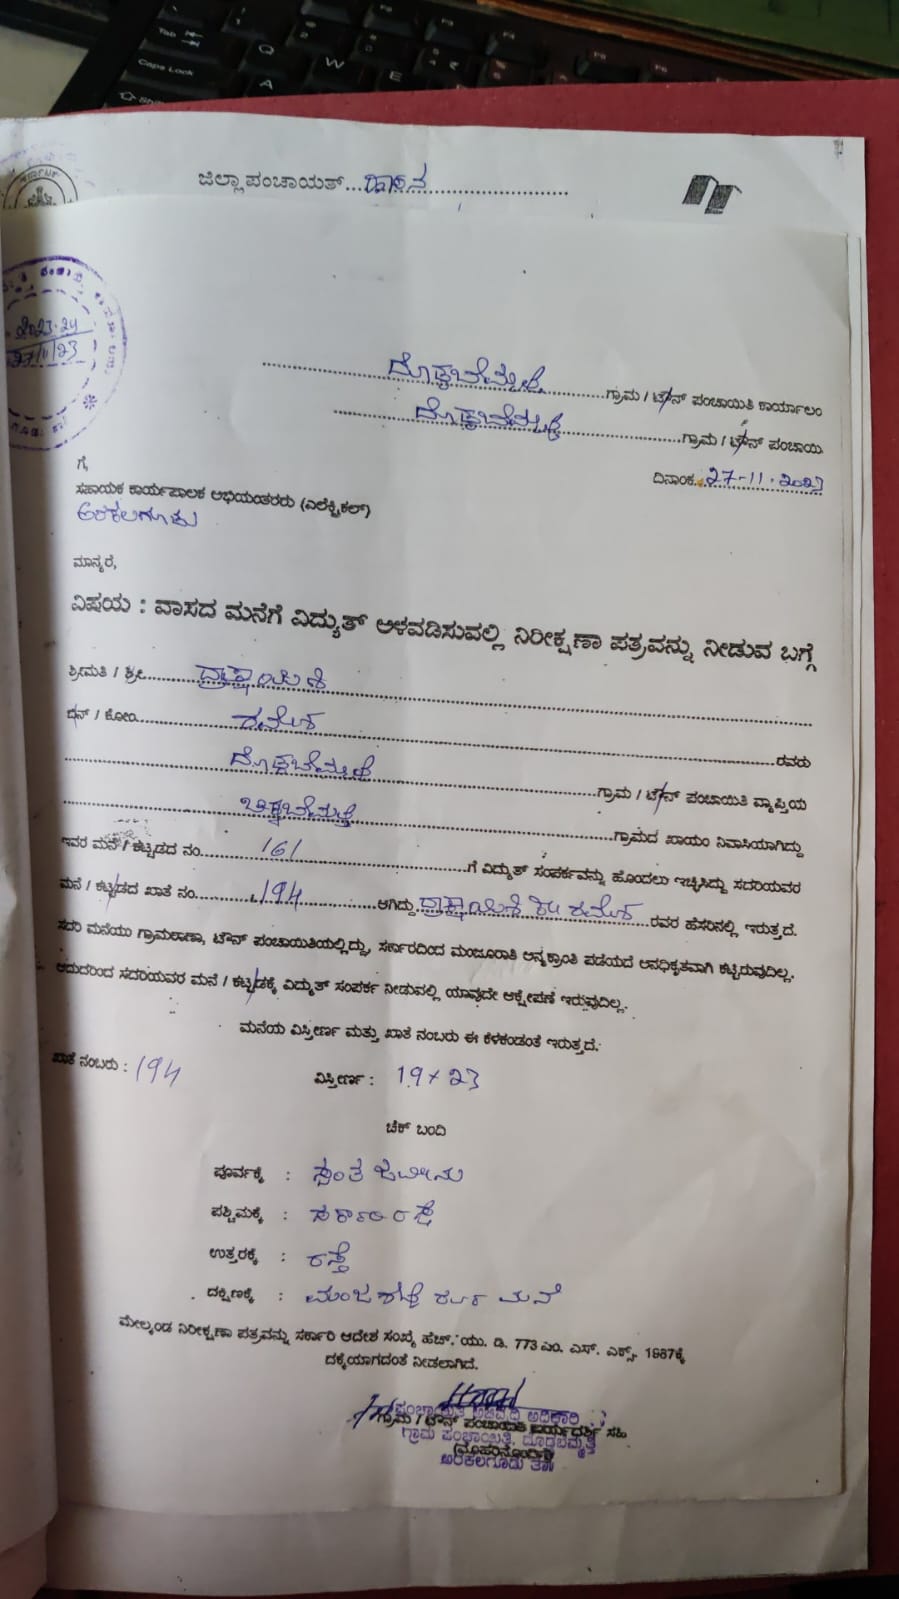 ಜಿಲ್ಲಾ ಪಂಚಾಯತ್...ಹಾಸನ
2023-24
27/11/23
ದೊಡ್ಡಬೆಮ್ಮತ್ತಿ ಗ್ರಾಮ / ಟೌನ್ ಪಂಚಾಯಿತಿ ಕಾರ್ಯಾಲಂ
ದೊಡ್ಡಬೆಮ್ಮತ್ತಿ ಗ್ರಾಮ / ಟೌನ್ ಪಂಚಾಯಿ
ದಿನಾಂಕ. 27-11-2023
ಗೆ,
ಸಹಾಯಕ ಕಾರ್ಯಪಾಲಕ ಅಭಿಯಂತರರು (ಎಲೆಕ್ಟ್ರಿಕಲ್)
ಅರಕಲಗೂಡು
ಮಾನ್ಯರೆ,
ವಿಷಯ : ವಾಸದ ಮನೆಗೆ ವಿದ್ಯುತ್ ಅಳವಡಿಸುವಲ್ಲಿ ನಿರೀಕ್ಷಣಾ ಪತ್ರವನ್ನು ನೀಡುವ ಬಗ್ಗೆ
ಶ್ರೀಮತಿ / ಶ್ರೀ ದ್ರಾಕ್ಷಾಯಿಣಿ
ಬಿನ್ / ಕೋಂ ರಮೇಶ ರವರು
ದೊಡ್ಡಬೆಮ್ಮತ್ತಿ ಗ್ರಾಮ / ಟೌನ್ ಪಂಚಾಯಿತಿ ವ್ಯಾಪ್ತಿಯ
ಚಿಕ್ಕಬೆಮ್ಮತ್ತಿ ಗ್ರಾಮದ ಖಾಯಂ ನಿವಾಸಿಯಾಗಿದ್ದು
ಇವರ ಮನೆ / ಕಟ್ಟಡದ ನಂ. 161 ಗೆ ವಿದ್ಯುತ್ ಸಂಪರ್ಕವನ್ನು ಹೊಂದಲು ಇಚ್ಛಿಸಿದ್ದು ಸದರಿಯವರ
ಮನೆ / ಕಟ್ಟಡದ ಖಾತೆ ನಂ. 194 ಆಗಿದ್ದು ದ್ರಾಕ್ಷಾಯಿಣಿ ರಮೇಶ ರವರ ಹೆಸರಿನಲ್ಲಿ ಇರುತ್ತದೆ.
ಸದರಿ ಮನೆಯು ಗ್ರಾಮಠಾಣಾ, ಟೌನ್ ಪಂಚಾಯಿತಿಯಲ್ಲಿದ್ದು, ಸರ್ಕಾರದಿಂದ ಮಂಜೂರಾತಿ ಅನ್ಯಕ್ರಾಂತಿ ಪಡೆಯದೆ ಅನಧಿಕೃತವಾಗಿ ಕಟ್ಟಿರುವುದಿಲ್ಲ.
ಆದುದರಿಂದ ಸದರಿಯವರ ಮನೆ / ಕಟ್ಟಡಕ್ಕೆ ವಿದ್ಯುತ್ ಸಂಪರ್ಕ ನೀಡುವಲ್ಲಿ ಯಾವುದೇ ಆಕ್ಷೇಪಣೆ ಇರುವುದಿಲ್ಲ.
ಮನೆಯ ವಿಸ್ತೀರ್ಣ ಮತ್ತು ಖಾತೆ ನಂಬರು ಈ ಕೆಳಕಂಡಂತೆ ಇರುತ್ತದೆ.
ಖಾತೆ ನಂಬರು : 194 ವಿಸ್ತೀರ್ಣ : 19 x 23
ಚೆಕ್ ಬಂದಿ
ಪೂರ್ವಕ್ಕೆ : ಸ್ವಂತ ಜಮೀನು
ಪಶ್ಚಿಮಕ್ಕೆ : ಸರ್ಕಾರಿ ರಸ್ತೆ
ಉತ್ತರಕ್ಕೆ : ರಸ್ತೆ
ದಕ್ಷಿಣಕ್ಕೆ : ಮಂಜಶೆಟ್ಟಿ ರವರ ಮನೆ
ಮೇಲ್ಕಂಡ ನಿರೀಕ್ಷಣಾ ಪತ್ರವನ್ನು ಸರ್ಕಾರಿ ಆದೇಶ ಸಂಖ್ಯೆ ಹೆಚ್. ಯು. ಡಿ. 773 ಎಂ. ಎಸ್. ಎಕ್ಸ್. 1987ಕ್ಕೆ
ದಕ್ಕೆಯಾಗದಂತೆ ನೀಡಲಾಗಿದೆ.
ಪಂಚಾಯಿತಿ ಅಭಿವೃದ್ಧಿ ಅಧಿಕಾರಿ
ಗ್ರಾಮ / ಟೌನ್ ಪಂಚಾಯಿತಿ ಕಾರ್ಯದರ್ಶಿ ಸಹಿ
ಗ್ರಾಮ ಪಂಚಾಯಿತಿ, ದೊಡ್ಡಬೆಮ್ಮತ್ತಿ
(ಮೊಹರಿನೊಂದಿಗೆ)
ಅರಕಲಗೂಡು ತಾ||